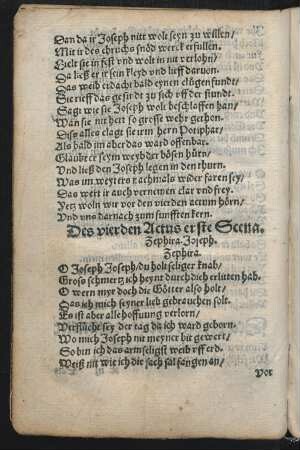 Dan da ir Joseph nitt wolt seyn zu willen/
Mit ir des ehruchs schnöd werck erfüllen.
Hielt sie in fest vnd wolt in nit verlohn/
Da ließ er ir sein kleyd vnd lieff daruon.
Das weib erdacht bald eynen clügen fundt/
Sie rieff das gesind zu sich vff der stundt.
Sagt wie sie Joseph wolt beschlaffen han/
Wan sie nit hert so grosse wehr gethon.
Diß alles clagt sie irm hern Potiphar/
Als bald im aber das ward offenbar.
Glaubter seym weyb der bösen hürn/
Vnd ließ den Joseph legen in den thurn.
Was im weyters nachmals wider faren sey/
Das wert ir auch vernemen clar vnd frey.
Yetz woln wir vor den vierden actum hörn/
Vnd vns darnach zum fünfften kern.
Des vierden Actus erste Scena.
Zephira. Joseph.
Zephira.
O Joseph Joseph/du holtseliger knab/
Groß schmertz ich heynt durch dich erlitten hab.
O wern myr doch die Götter also holt/
Das ich mich seyner lieb gebrauchen solt.
Es ist aber alle hoffuung verlorn/
Verflucht sey der tag da ich ward geborn.
Wo mich Joseph nit meyner bit gewert/
So bin ich das armseligst weib vff erd.
Weiß nit wie ich die sach sal fangen an/
Vor